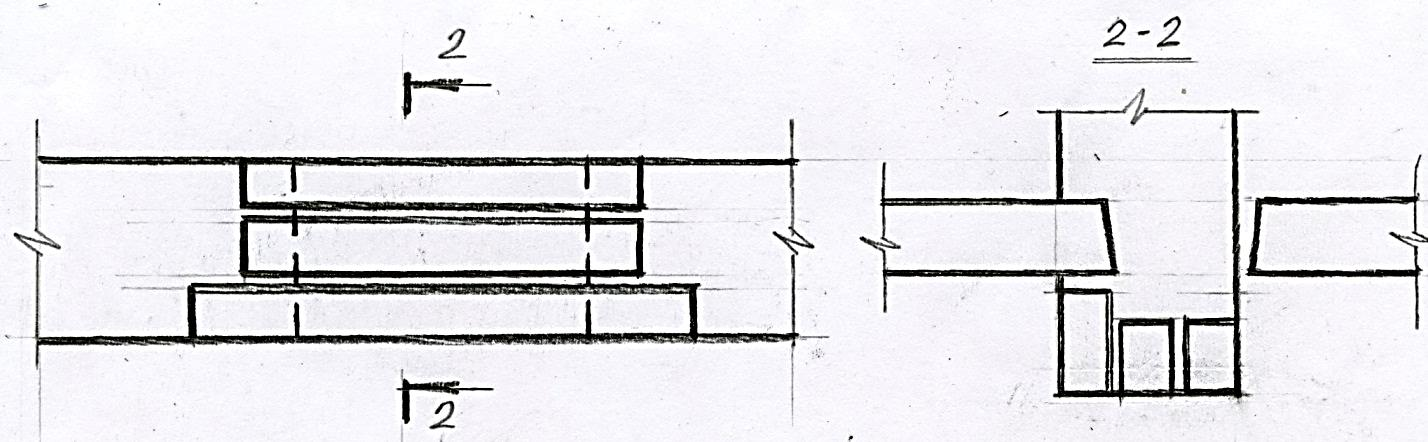 2
2
2-2